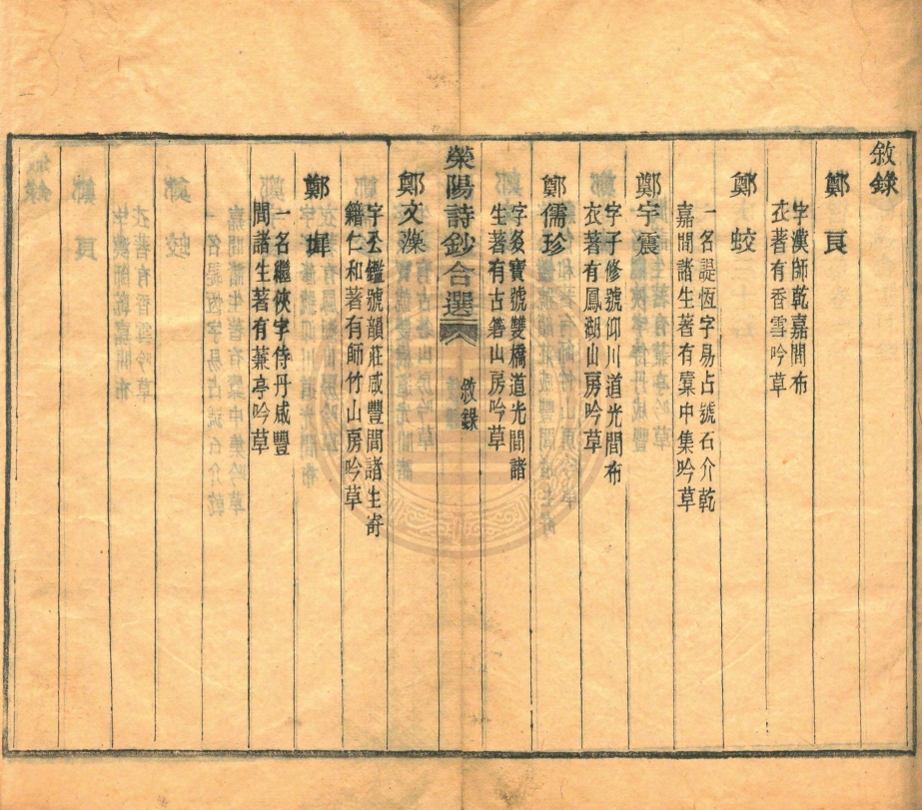 敘錄
鄭良
字漢師乾嘉間布
衣著有香雪吟草
鄭蛟
一名諟恆字易占號石介乾
嘉間諸生著有橐中集吟草
鄭宇震
字子修號仰川道光間布
衣著有鳳湖山房吟草
鄭儒珍
字毅寶號雙橋道光間諸
生著有古磐山房吟草
滎陽詩鈔合選
敘錄
鄭文藻
字丞鑑號韻莊咸豐間諸生寄
籍仁和著有師竹山房吟草
鄭墀
一名繼俠字侍丹咸豐
間諸生著有蒹亭吟草